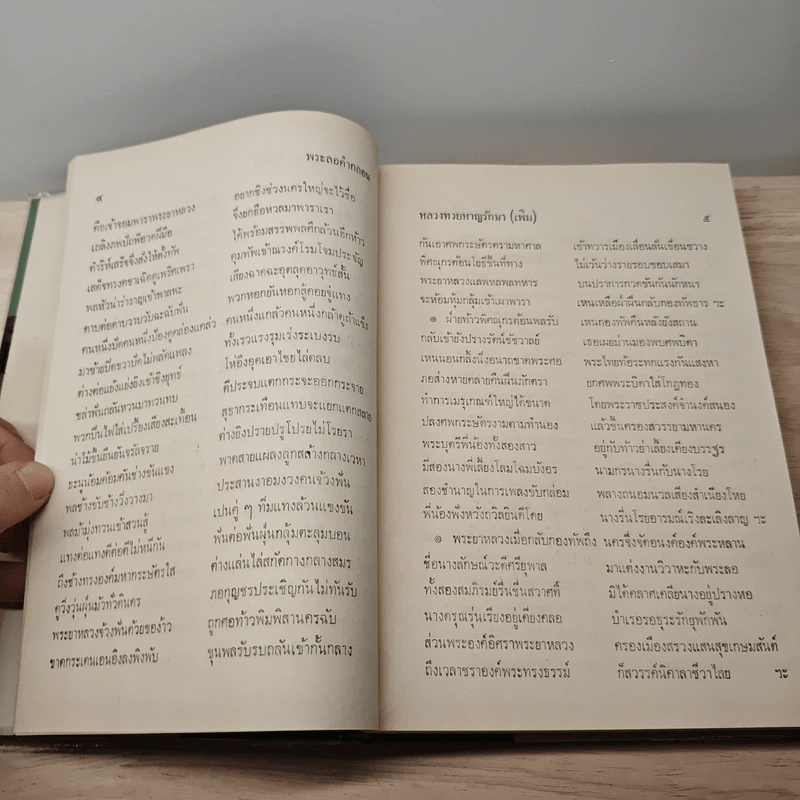 พระลอคำกลอน
๔
คือเจ้าจอมพาราพระยาหลวง อยากชิงช่วงนครใหญ่จะไว้ชื่อ
เถลิงภพปักพียวคผีมือ จึงยกยือหวลมาพาราเรา
ดำริห์เสร็จจึ่งสั่งให้ตั้งทัพ ได้พร้อมสรรพพลศึกล้วนฮึกห้าว
เสด็จทรงคชาเฉิดดูเพริศเพรา คุมทัพเข้าณรงค์โรมโจมประจัญ
พลหัวน่าร่าราญเข้าพาลพะ เสียงฉาดฉะอุตลุดอาวุทธ์สั้น
ดาบต่อดาบวาบวับฉะฉับฟัน พวกหอกยันหอกสู้คอยจู่แทง
คนหนึ่งปัดคนหนึ่งป้องดูคล่องแคล่ว คนหนึ่งแกล้วคนหนึ่งกล้าดูถ้าแข็ง
มาซ้ายปัดขวาปัดไม่พลัดแพลง ทั้งเรวแรงรุมเร่งระเบงรบ
ต่างต่อแย้งแย่งยิงเข้าชิงยุทธ์ โห่อึงอุดเอาไชยไล่ตลบ
ขล่ำพันกลันหวนมาทวนทบ ตีประจบแตกกระจะออกกระจาย
พวกปืนไฟใส่เปรี้ยงเสียงสะเทื้อน สุธากระเทือนแทบจะแยกแตกสลาย
น่าไม้ขึ้นยืนยันจรัลจราย ต่างยิงปรายปรูโปรยไม่โรยรา
ธะนูน้อมค้อมคันช่างขันแขง พาดสายแผลงลูกสล้างกลางเวหา
พลช้างขับช้างวิ่งวางมา ประสานงาอมงวงคนจ้วงฟัน
พลม้ามุ่งทวนเข้าสวนสู้ เปนคู่ ๆ ทิ่มแทงล้วนแขงขัน
แทงต่อแทงดีต่อดีไม่หนีกัน พันต่อพันผุ่นกลุ้มตะลุมบอน
ถึงช้างทรงองค์มหากระษัตรใส ต่างแล่นไล่สกัดกางกลางสมร
ดูวิ่งวุ่นผุ่นมัวทั่วดินดร ภอกุญชรประเชิญกันไม่ทันรับ
พระยาหลวงจ้วงฟันด้วยของ้าว ถูกศอท้าวพิมพิสานครฉับ
ขาดกระเดนเอนอิงลงพิงพับ ขุนพลรับรบถลันเข้ากั้นกลาง
หลวงทวยหาญรักษา (เพิ่ม) ๕
กันเอาศพกระษัตรตรามหาศาล เข้าทวารเมืองเลื่อนลั่นเขื่อนขวาง
พิศณุกรต้อนโยธีขึ้นที่ทาง ไม่เว้นว่างรายรอบขอบเสมา
พระยาหลวงแลพหลพลทหาร บนปราการกวดขันกันนักหนา
จะห้อมหุ้มกลุ้มเข้าเผาพารา เหนเหลือฝ่าฝืนกลับกองทัพธาร ฯะ
๏ ฝ่ายท้าวพิศณุกรต้อนพลรับ เหนกองทัพคืนหลังยังสถาน
กลับเข้ายังปรางรัตน์ชัชวาลย์ เธอเผยม่านมองพบศพบิดา
เหนนอนกลิ้งนิ่งอนาถขาดพระศอ พระไทยท้อระทกแรงกันแสงหา
ภอส่างหายคลายคืนผืนภักตรา ยกศพพระบิดาใส่โกฎทอง
ทำการเมรุเกณฑ์ใหญ่ได้ขนาด โดยพระราชประสงค์จำนงค์สนอง
ปลงศพกระษัตรงามตามทำนอง แล้วขึ้นครองสวรรยามหานคร
พระบุตรีพี่น้องทั้งสองสาว อยู่กับท้าวย่าเลี้ยงเคียงบรรฐร
มีสองนางพี่เลี้ยงโลมโฉมบังอร นามกรนางรื่นกับนางโรย
สองชำนาญในการเพลงขับกล่อม พลางถนอมนวลเสียงสำเนียงโหย
พี่น้องฟังหวังถวิลยินดีโดย นางรื่นโรยอารมณ์เริงละเลิงสาญ ฯะ
๏ พระยาหลวงเมื่อกลับกองทัพถึง นครซึ่งจัดอนงค์องค์พระหลาน
ชื่อนางลักษณ์วะดีศรียุพาล มาแต่งงานวิวาหะกับพระลอ
ทั้งสองสมภิรมย์รื่นชื่นสวาศดิ์ มิได้คลาศเคลียนางอยู่ปรางหอ
นางดรุณรุ่นเรียงอยู่เคียงคลอ บำเรอรอธุระรักยุพักพัน
ส่วนพระองค์อิศราพระยาหลวง ครองเมืองสรวงแสนสุขเกษมสันต์
ถึงเวลาชราองค์พระทรงธรรม์ ก็สวรรค์นิคาลาชีวาไลย ฯะ